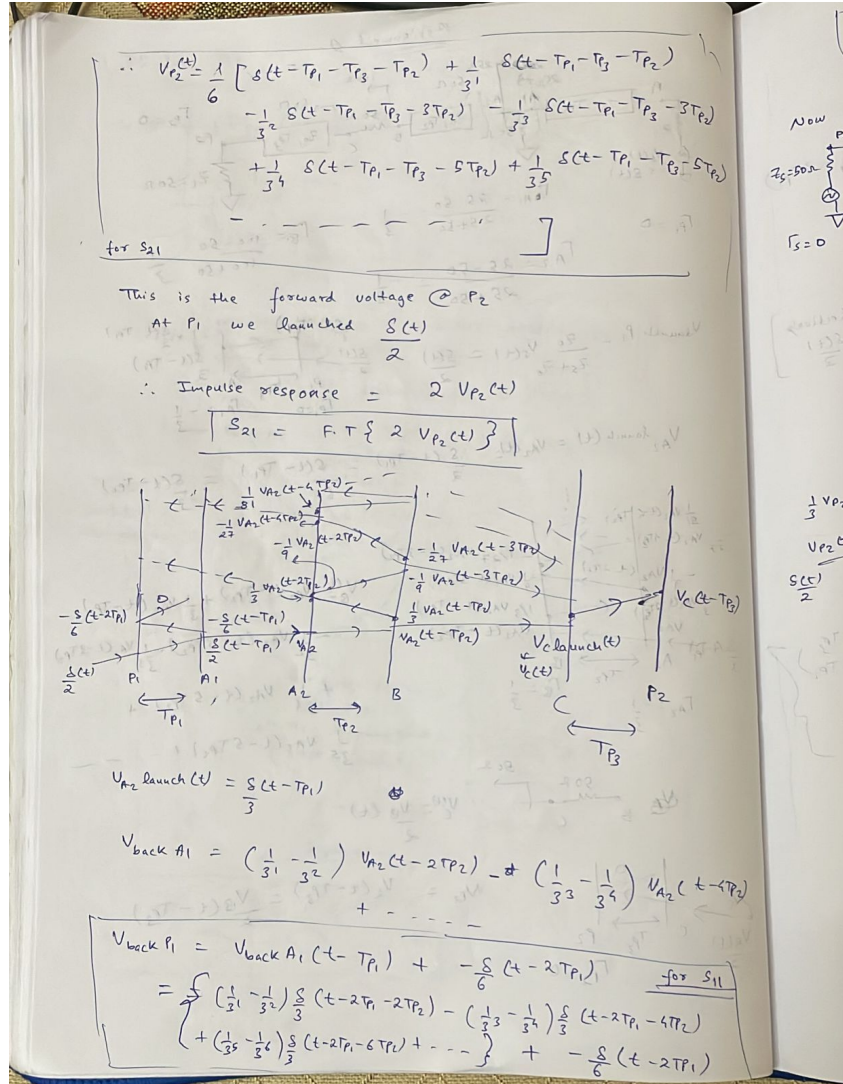 ∴ V_P2(t) = 1/6 [ δ(t - T_P1 - T_P3 - T_P2) + 1/3^1 δ(t - T_P1 - T_P3 - T_P2)
- 1/3^2 δ(t - T_P1 - T_P3 - 3T_P2) - 1/3^3 δ(t - T_P1 - T_P3 - 3T_P2)
+ 1/3^4 δ(t - T_P1 - T_P3 - 5T_P2) + 1/3^5 δ(t - T_P1 - T_P3 - 5T_P2)
- - - - - - - ]
for S21
This is the forward voltage @ P2
At P1 we launched δ(t)/2
∴ Impulse response = 2 V_P2(t)
S21 = F.T { 2 V_P2(t) }
1/81 V_A2(t-4T_P2)
-1/27 V_A2(t-4T_P2)
-1/9 V_A2(t-2T_P2)
1/3 V_A2(t-2T_P2)
-1/27 V_A2(t-3T_P2)
-1/9 V_A2(t-3T_P2)
1/3 V_A2(t-T_P2)
V_A2(t-T_P2)
0
-δ/6 (t-2T_P1)
-δ/6 (t-T_P1)
δ/2 (t-T_P1)
V_A2
δ(t)/2
V_C launch(t)
V_C(t)
V_C(t-T_P3)
P1 A1 A2 B C P2
T_P1 T_P2 T_P3
V_A2 launch(t) = δ/3 (t - T_P1)
V_back A1 = (1/3^1 - 1/3^2) V_A2(t - 2T_P2) - (1/3^3 - 1/3^4) V_A2(t - 4T_P2)
+ - - - - -
V_back P1 = V_back A1(t - T_P1) + -δ/6 (t - 2T_P1)
for S11
= { (1/3^1 - 1/3^2) δ/3 (t - 2T_P1 - 2T_P2) - (1/3^3 - 1/3^4) δ/3 (t - 2T_P1 - 4T_P2)
+ (1/3^5 - 1/3^6) δ/3 (t - 2T_P1 - 6T_P2) + - - - } + -δ/6 (t - 2T_P1)
Now
P
Z_s = 50Ω
Γs = 0
1/3 V_P2
V_P2(t
δ(t)/2